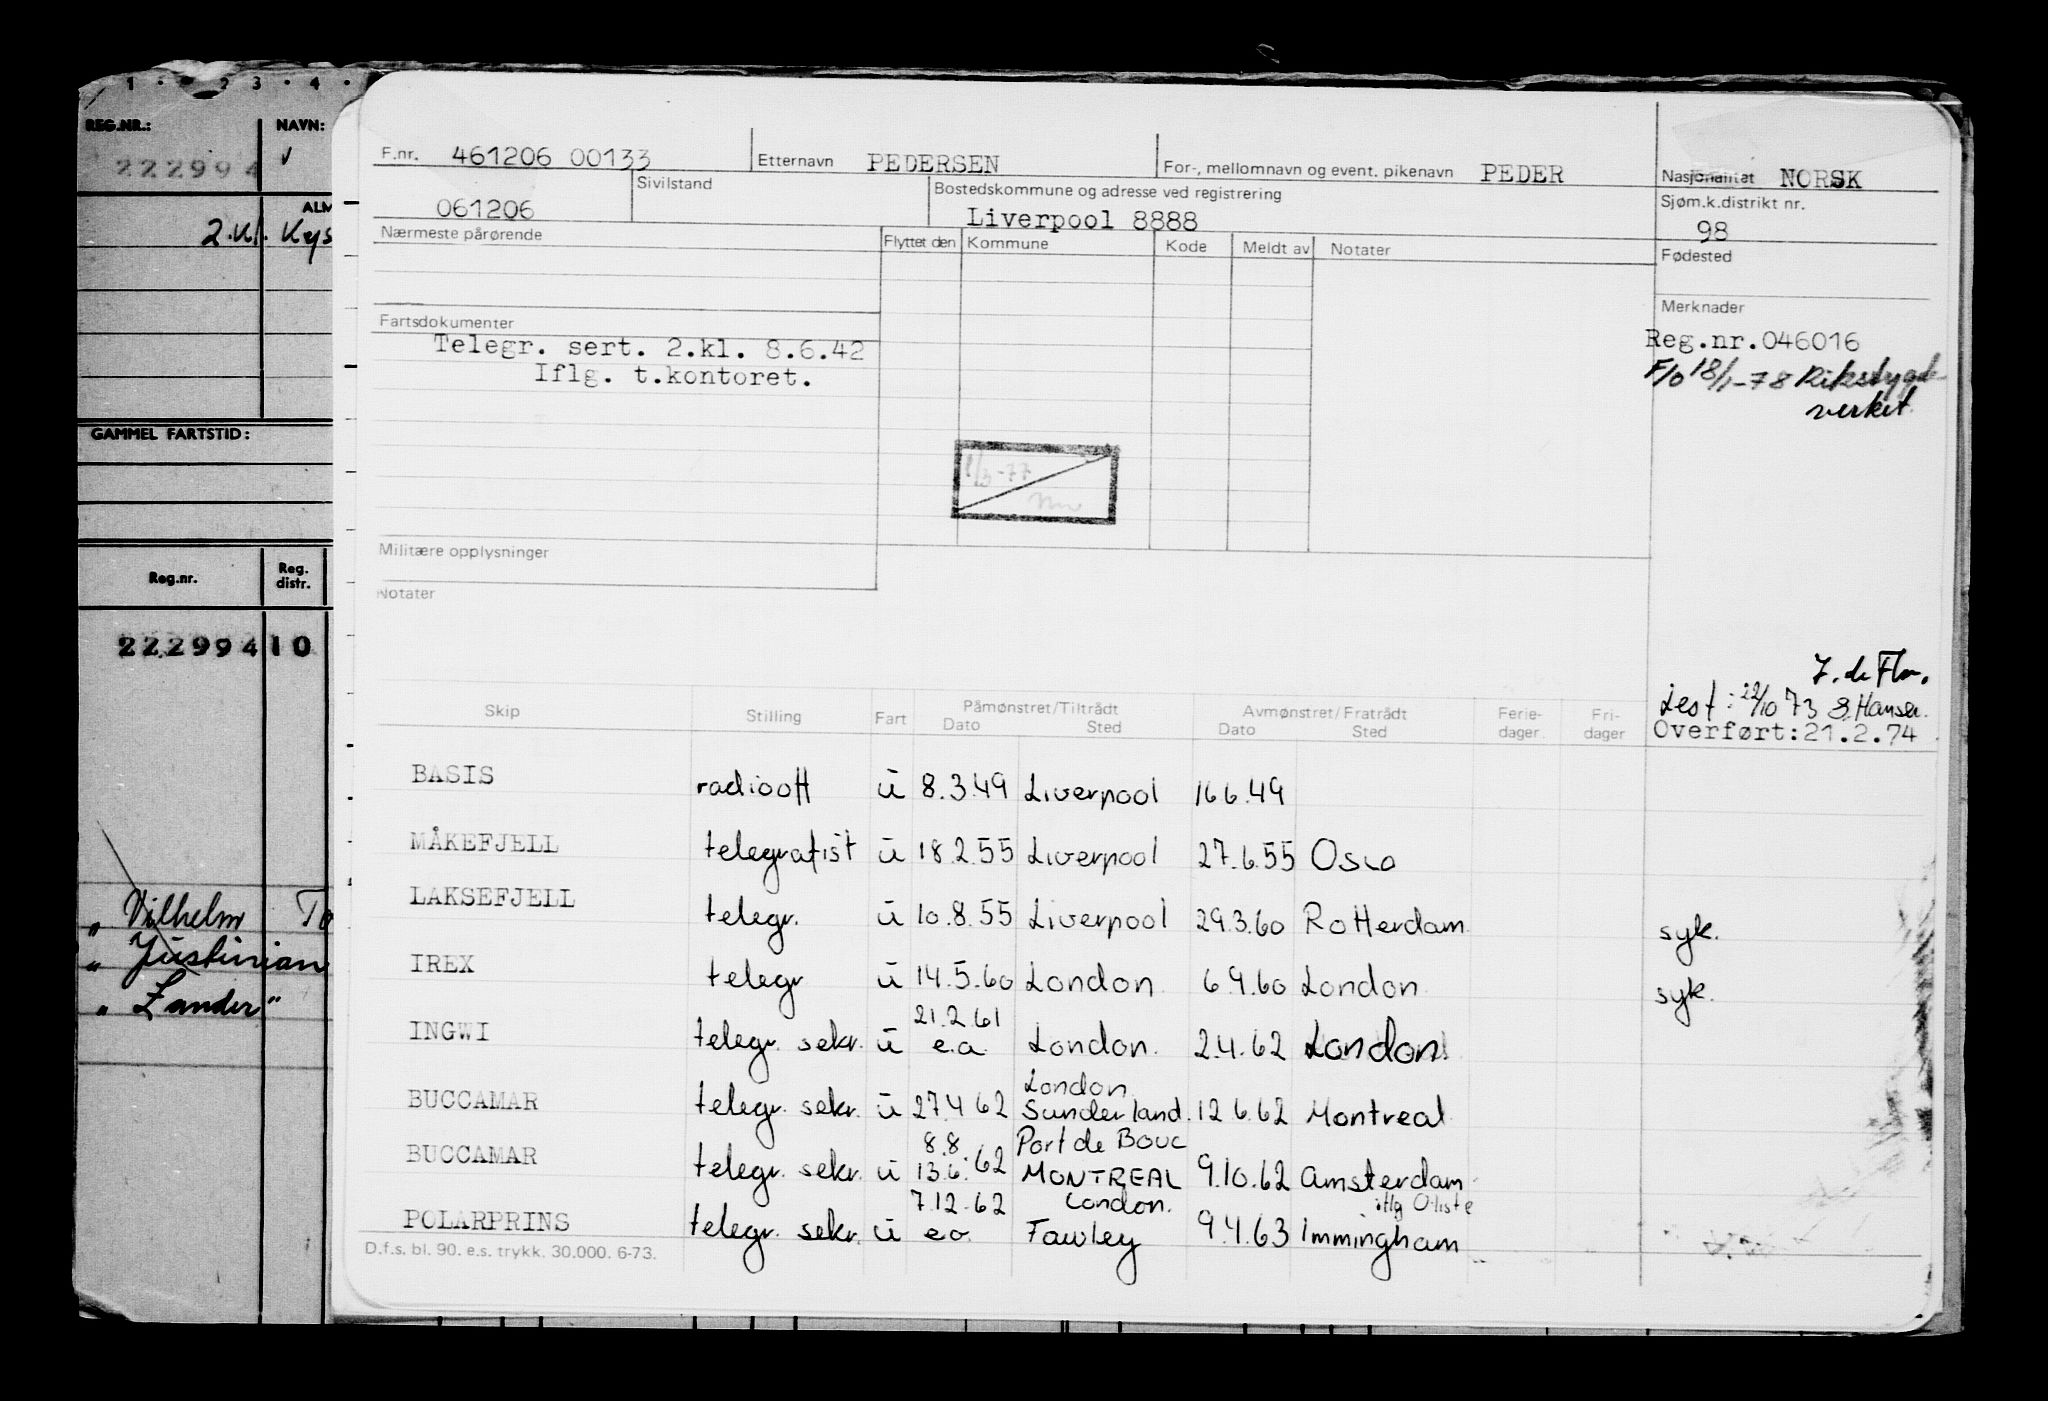 1 · 2 3 · 4 ·
REG.NR.: NAVN:
222994
ALM
2.kl. Kys
GAMMEL FARTSTID:
Reg.nr. Reg. distr.
222994 10
„ Vilhelm To
„ Justinian
„ Zander"
F.nr. 461206 00133 Etternavn PEDERSEN For-, mellomnavn og event. pikenavn PEDER Nasjonalitet NORSK
061206 Sivilstand Bostedskommune og adresse ved registrering Liverpool 8888 Sjøm.k.distrikt nr. 98
Nærmeste pårørende Flyttet den Kommune Kode Meldt av Notater Fødested
Merknader
Fartsdokumenter
Telegr. sert. 2.kl. 8.6.42
Iflg. t.kontoret.
Reg.nr.046016
F/o 18/1-78 Rikstrygde-
verket
1/3-77
Militære opplysninger
Notater
Lest: 22/10 73 S. Hansen.
Overført:21.2.74
Skip Stilling Fart Påmønstret/Tiltrådt Dato Sted Avmønstret/Fratrådt Dato Sted Ferie-dager Fri-dager
BASIS radiooff u 8.3.49 Liverpool 16 6.49
MÅKEFJELL telegrafist u 18.2.55 Liverpool 27.6.55 Oslo
LAKSEFJELL telegr. u 10.8.55 Liverpool 29.3.60 Rotterdam syk.
IREX telegr u 14.5.60 London 6 9.60 London syk.
21.2.61
INGWI telegr. sekr. u e.a. London. 2.4.62 London
London
BUCCAMAR telegr. sekr. u 27.4 62 Sunderland. 12 6.62 Montreal
8.8. Port de Bouc
BUCCAMAR telegr. sekr. u 13.6.62 MONTREAL 9.10.62 Amsterdam
7.12.62 London. iflg O-liste
POLARPRINS telegr. sekr. u e.o. Fawley 9.4.63 Immingham
D.f.s. bl. 90. e.s. trykk. 30.000. 6-73.